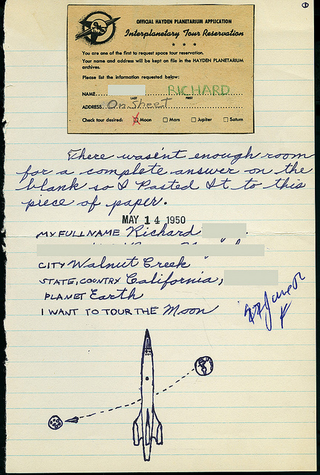 OFFICIAL HAYDEN PLANETARIUM APPLICATION
Interplanetary Tour Reservation
You are one of the first to request space tour reservation.
Your name and address will be kept on file in the HAYDEN PLANETARIUM
archives.
Please list the information requested below:
NAME RICHARD
LAST FIRST
ADDRESS On Sheet
Check tour desired: Moon Mars Jupiter Saturn
There wasent enough room
for a complete answer on the
blank so I Pasted It to this
piece of paper.
MAY 14 1950
MY FULL NAME Richard
CITY Walnut Creek
STATE, COUNTRY California,
PLANET Earth
I WANT TO TOUR THE Moon